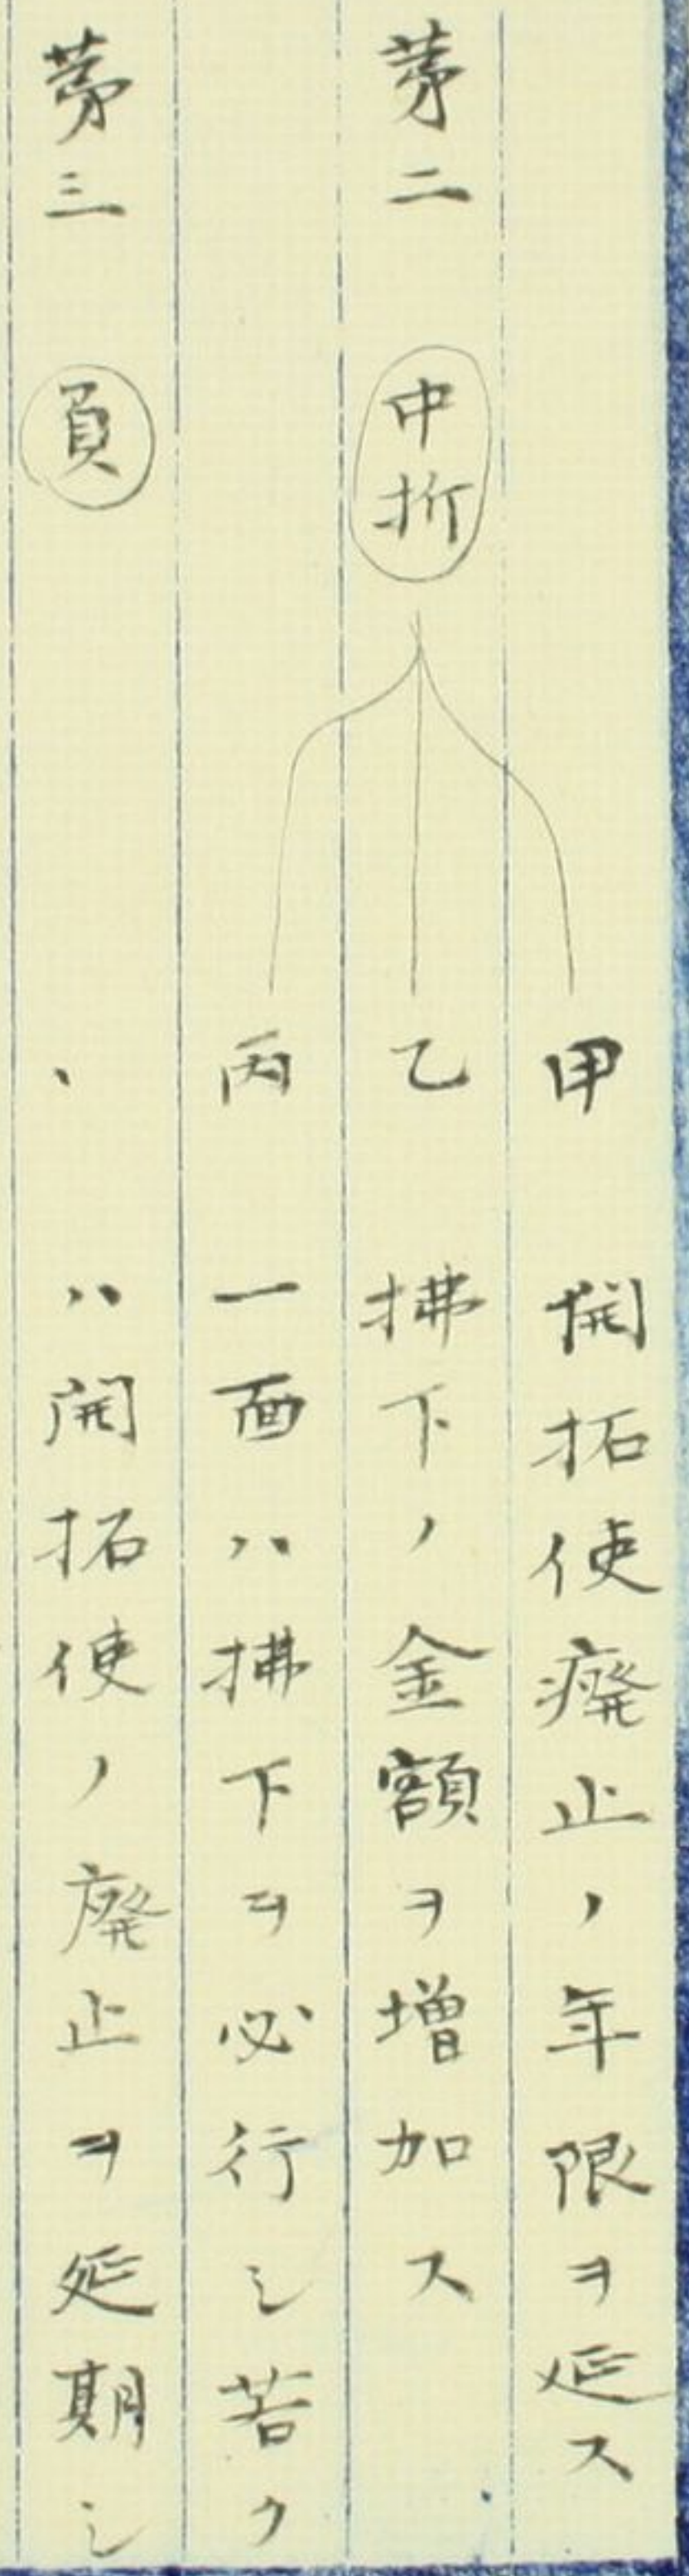 甲 開拓使癈止ノ年限ヲ延ス
第二 中折 乙 拂下ノ金額ヲ増加ス
丙 一面ハ拂下ヲ必行シ若ク
第三 負 ハ開拓使ノ廢止ヲ延期シ